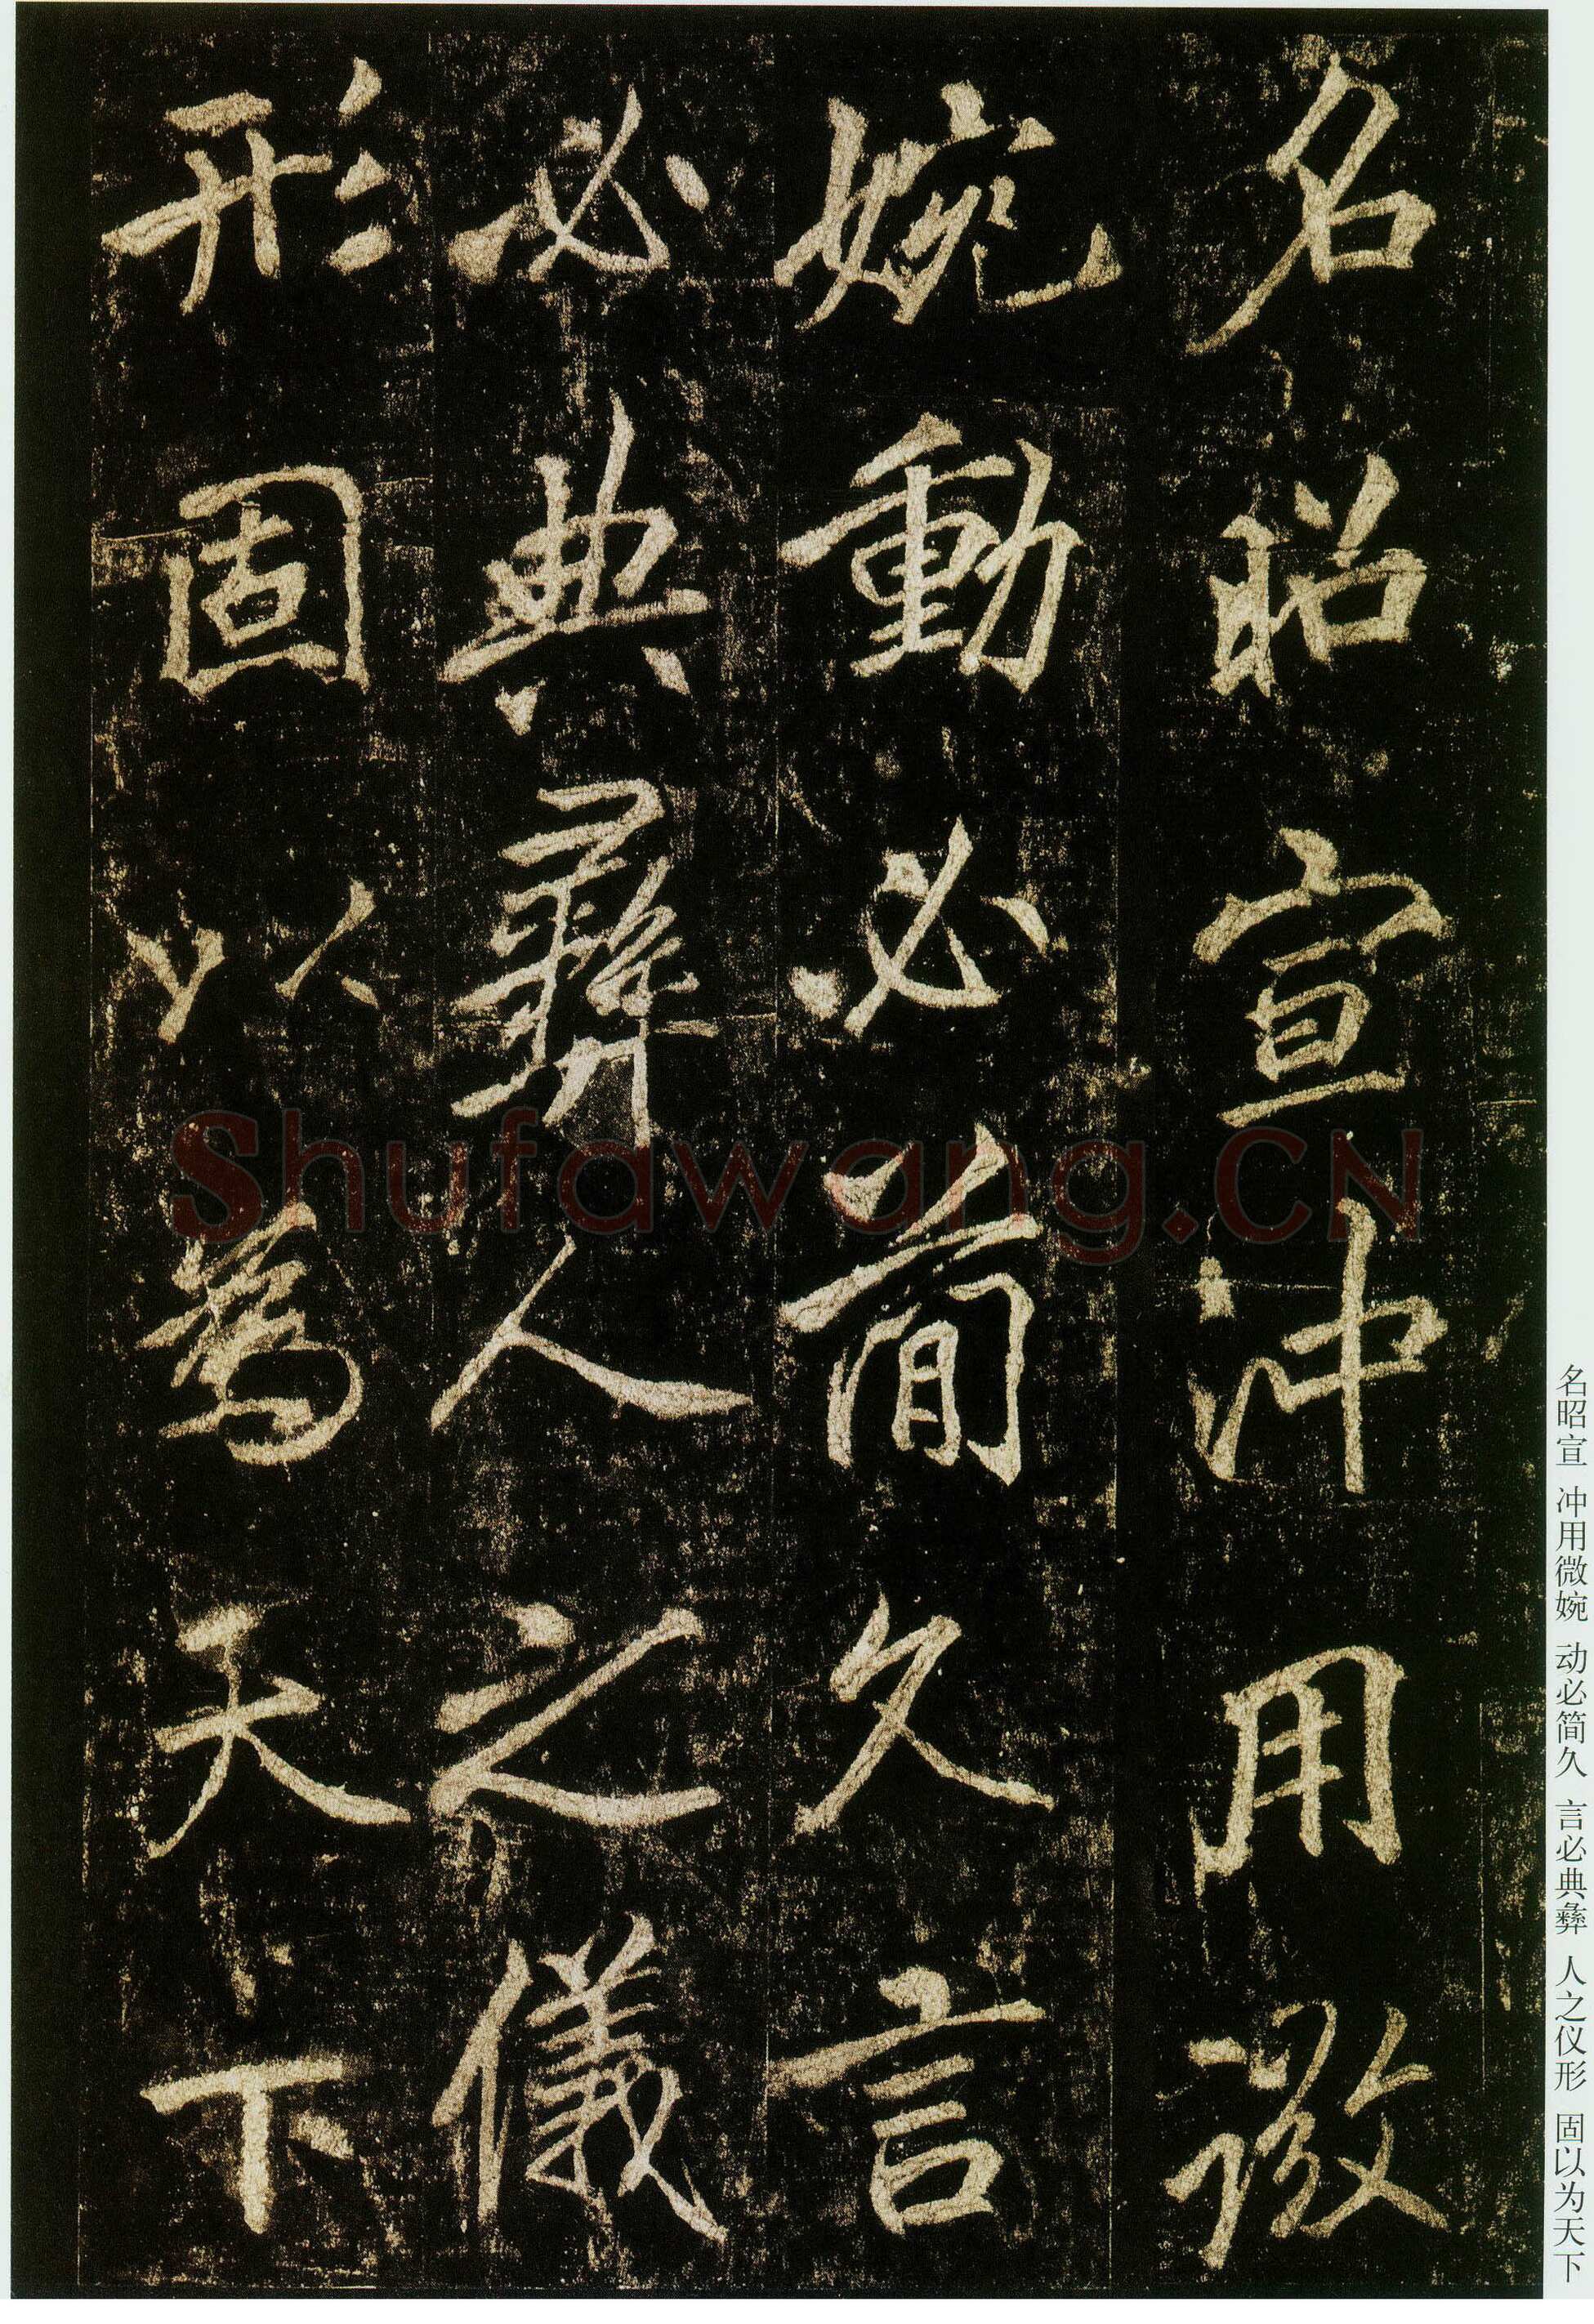 名昭宣沖用微
婉動必簡久言
必典彝人之儀
形固以為天下
Shufawang.CN
名昭宣 冲用微婉 动必简久 言必典彝 人之仪形 固以为天下